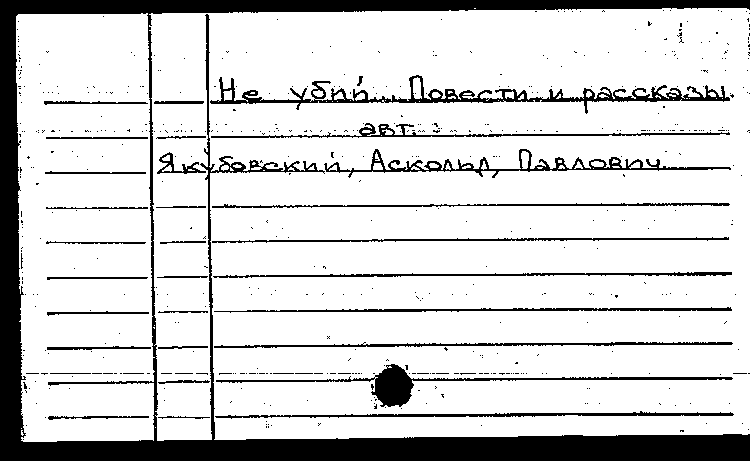 Не убий. Повести и рассказы.
авт. :
Якубовский, Аскольд, Павлович